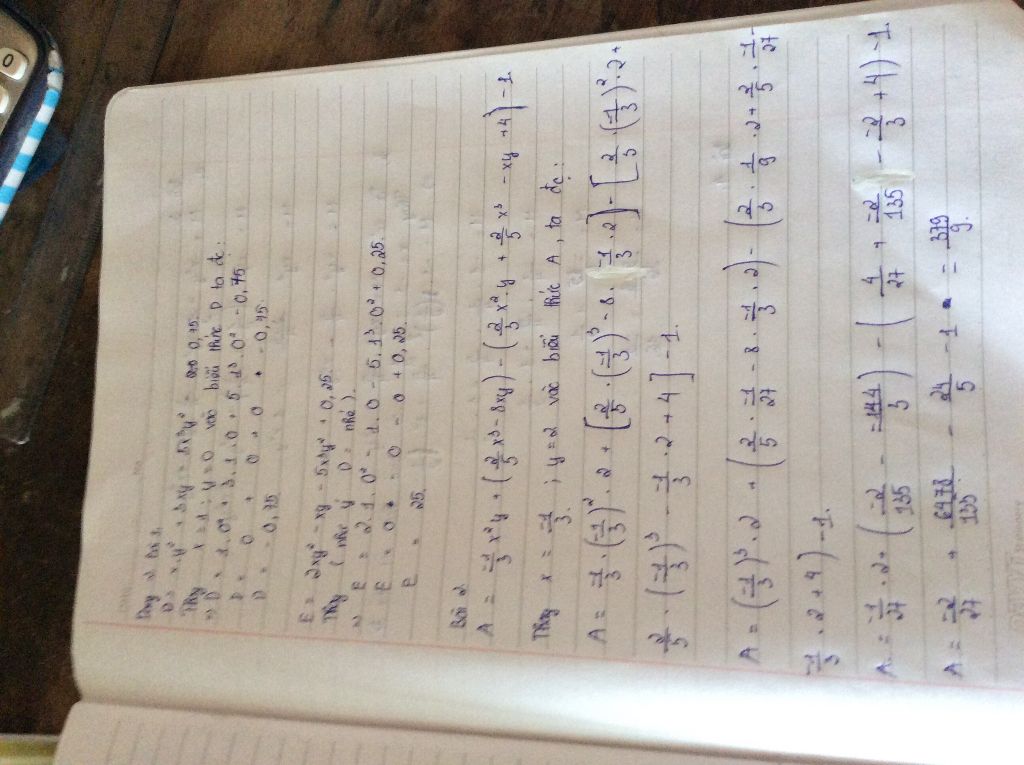 Dạng 2. Bài 1.
D = x.y² + 3xy - 5x³y² - 0,75.
Thay x = 1; y = 0 vào biểu thức D ta đc:
=> D = 1.0² + 3.1.0 + 5.1³.0² - 0,75
D = 0 + 0 + 0 - 0,75.
D = - 0,75
E = 2xy² - xy - 5x³y² + 0,25.
Thay (như ý D = nhé).
=> E = 2.1.0² - 1.0 - 5.1³.0² + 0,25.
E = 0 - 0 - 0 + 0,25.
E = 25.
Bài 2
A = -1/3 x²y + (2/5 x³ - 8xy) - (2/3 x²y + 2/5 x³ - xy + 4) - 1
Thay x = -1/3 ; y = 2 vào biểu thức A, ta đc:
A = -1/3 . (-1/3)² . 2 + [2/5 . (-1/3)³ - 8 . -1/3 . 2] - [2/3 . (-1/3)² . 2 +
2/5 . (-1/3)³ - -1/3 . 2 + 4] - 1.
A = (-1/3)³ . 2 + (2/5 . -1/27 - 8 . -1/3 . 2) - (2/3 . 1/9 . 2 + 2/5 . -1/27 -
-1/3 . 2 + 4) - 1.
A = -1/27 . 2 + (-2/135 - -144/3) - (4/27 + -2/135 - -2/3 + 4) - 1.
A = -2/27 + 6478/135 - 24/5 - 1 = 379/9.